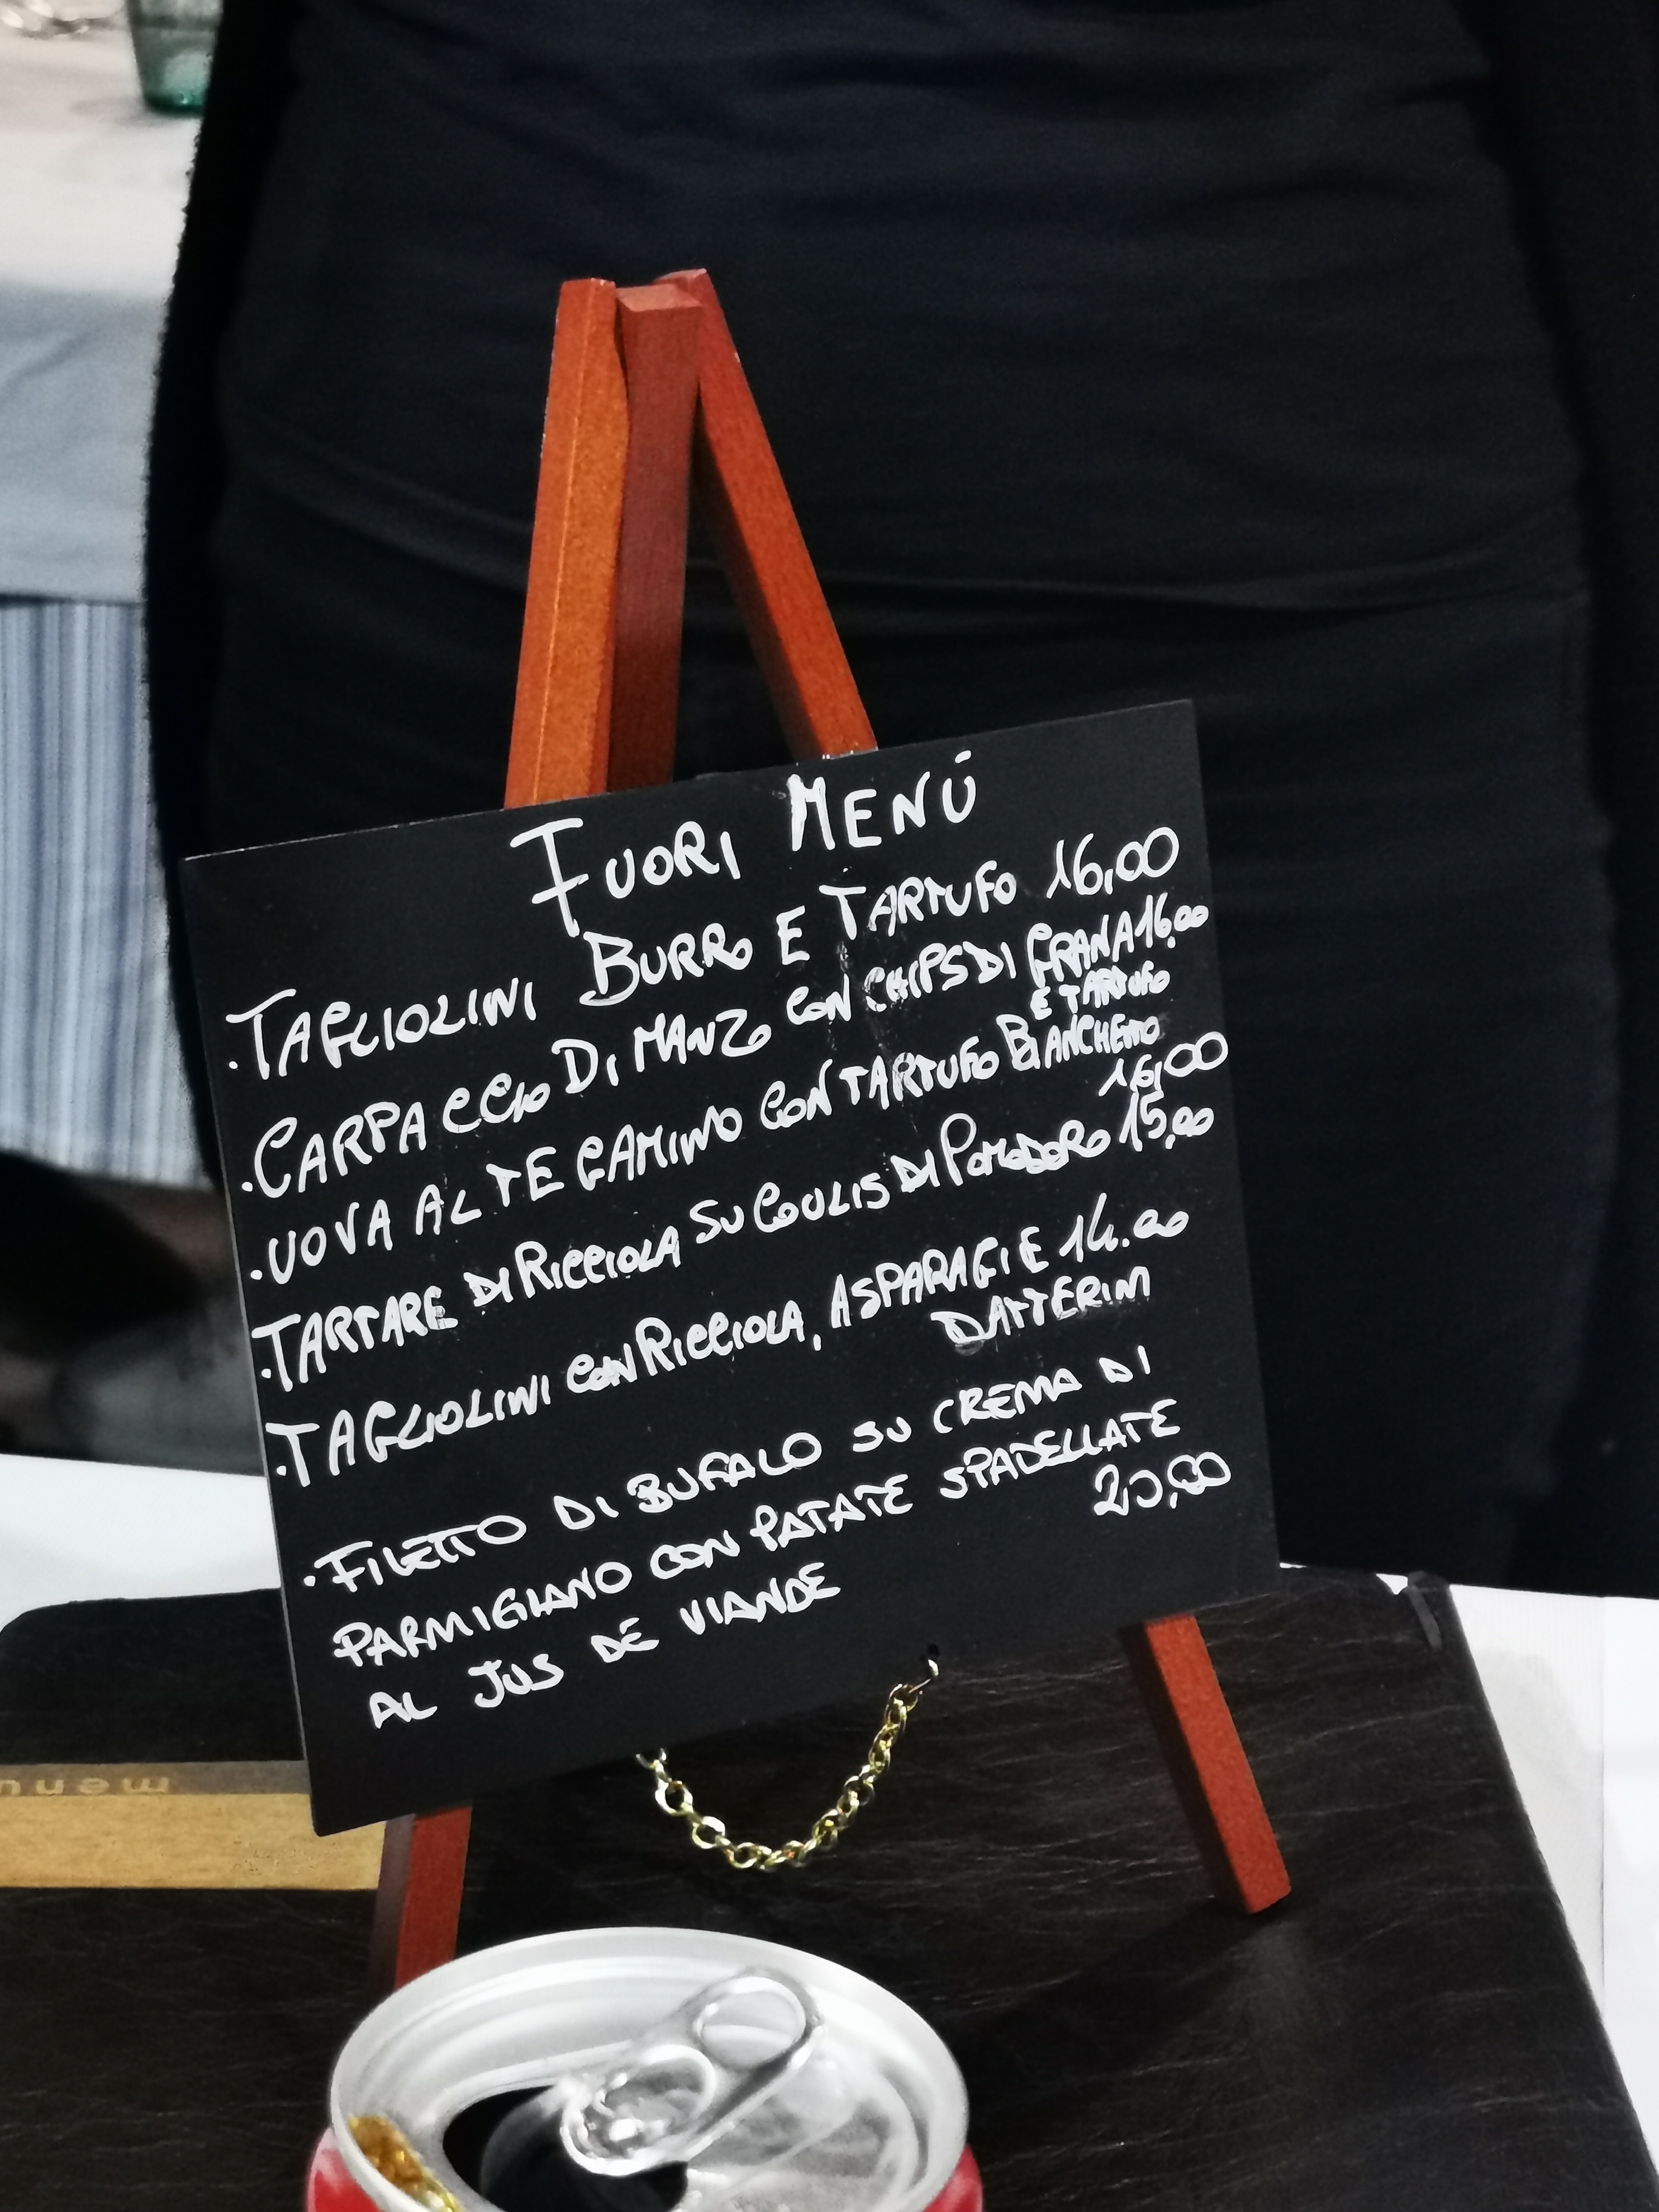 FUORI MENÚ
• TAGLIOLINI BURRO E TARTUFO 16,00
• CARPACCIO DI MANZO CON CHIPS DI GRANA 16,00
E TARTUFO
• UOVA AL TEGAMINO CON TARTUFO BIANCHETTO
16,00
• TARTARE DI RICCIOLA SU COULIS DI POMODORO 15,00
• TAGLIOLINI CON RICCIOLA, ASPARAGI E 14.00
DATTERINI
• FILETTO DI BUFALO SU CREMA DI
PARMIGIANO CON PATATE SPADELLATE
AL JUS DE VIANDE
menu